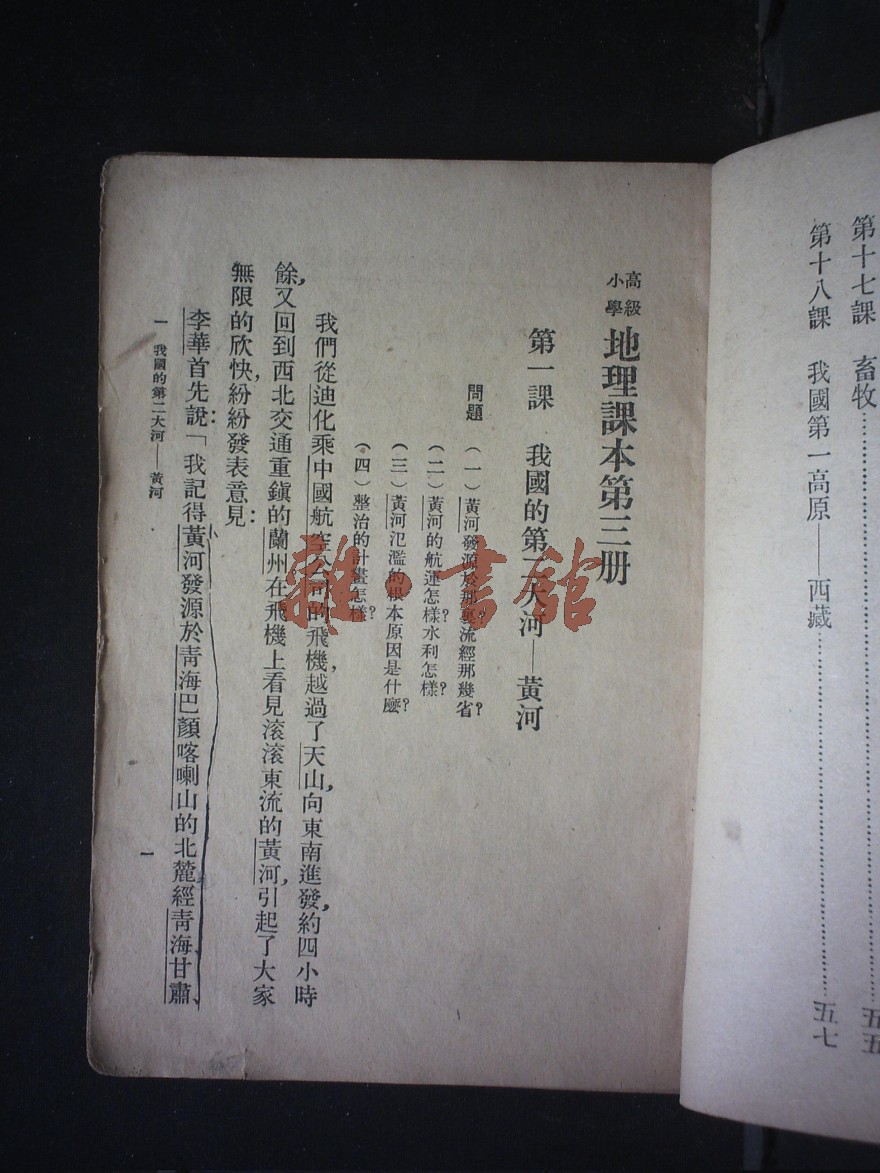 第十七課　畜牧……五五
第十八課　我國第一高原——西藏……五七
高級小學 地理課本第三册
第一課　我國的第二大河——黃河
問題　(一)黃河發源於那裏?流經那幾省?
(二)黃河的航運怎樣?水利怎樣?
(三)黃河氾濫的根本原因是什麼?
(四)整治的計畫怎樣?
我們從迪化乘中國航空公司的飛機,越過了天山,向東南進發,約四小時
餘,又回到西北交通重鎮的蘭州.在飛機上看見滾滾東流的黃河,引起了大家
無限的欣快,紛紛發表意見:
李華首先說:「我記得黃河發源於青海巴顏喀喇山的北麓,經青海、甘肅、
一　我國的第二大河——黃河
一
雜·書館